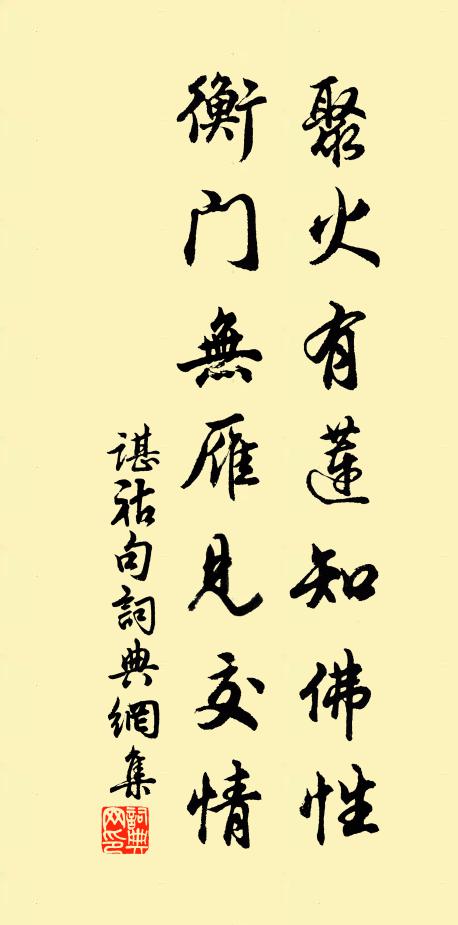 聚火有蓮知佛性
衡门無雁見交情
諶祜句詞典網集
詞典网印